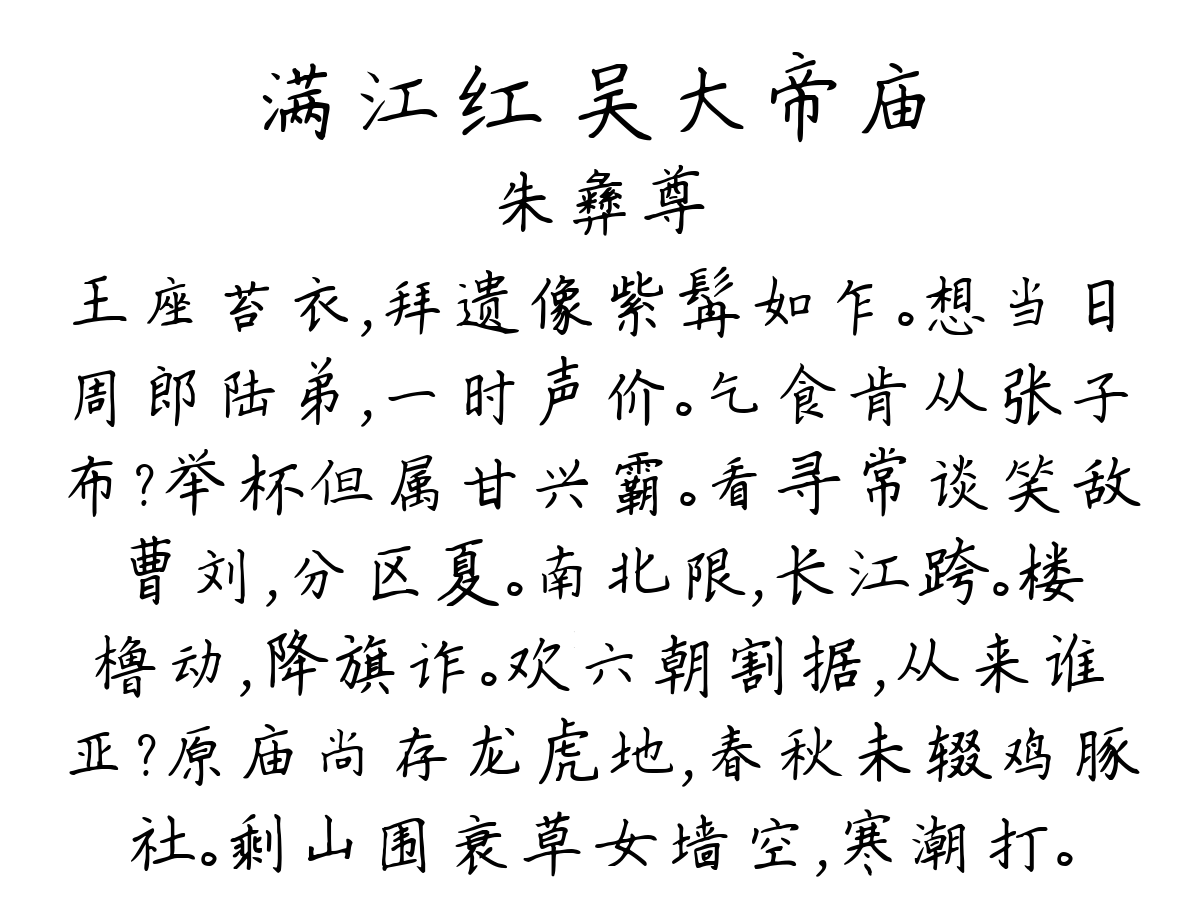 满江红吴大帝庙
朱彝尊
王座苔衣,拜遗像紫髯如乍。想当日
周郎陆弟,一时声价。乞食肯从张子
布?举杯但属甘兴霸。看寻常谈笑敌
曹刘,分区夏。南北限,长江跨。楼
橹动,降旗诈。欢六朝割据,从来谁
亚?原庙尚存龙虎地,春秋未辍鸡豚
社。剩山围衰草女墙空,寒潮打。